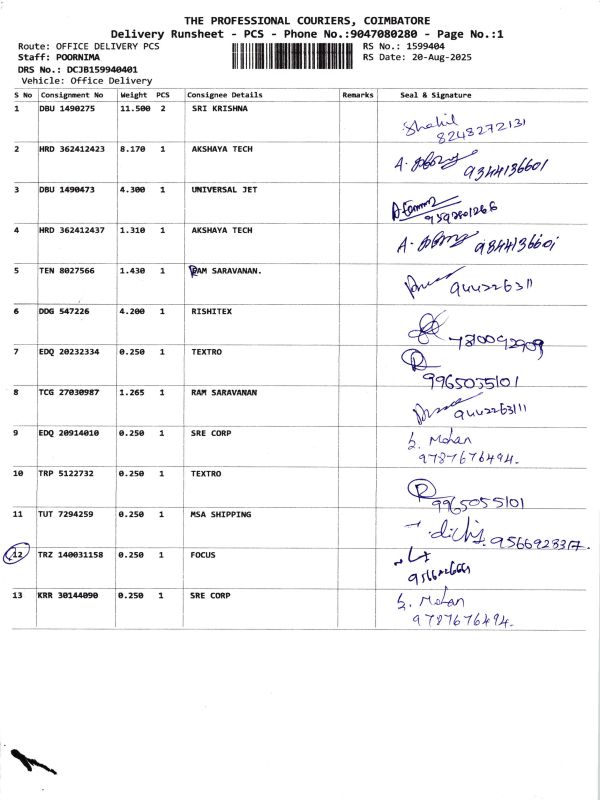 THE PROFESSIONAL COURIERS, COIMBATORE
Delivery Runsheet - PCS - Phone No.:9047080280 - Page No.:1
Route: OFFICE DELIVERY PCS RS No.: 1599404
Staff: POORNIMA RS Date: 20-Aug-2025
DRS No.: DCJB159940401
Vehicle: Office Delivery
S No Consignment No Weight PCS Consignee Details Remarks Seal & Signature
1 DBU 1490275 11.500 2 SRI KRISHNA
Shahil
8248272131
2 HRD 362412423 8.170 1 AKSHAYA TECH
9344136601
3 DBU 1490473 4.300 1 UNIVERSAL JET
4 HRD 362412437 1.310 1 AKSHAYA TECH
5 TEN 8027566 1.430 1 RAM SARAVANAN.
6 DDG 547226 4.200 1 RISHITEX
7 EDQ 20232334 0.250 1 TEXTRO
8 TCG 27030987 1.265 1 RAM SARAVANAN
9 EDQ 20914010 0.250 1 SRE CORP
Mohan
9787676494.
10 TRP 5122732 0.250 1 TEXTRO
9965055101
11 TUT 7294259 0.250 1 MSA SHIPPING
12 TRZ 140031158 0.250 1 FOCUS
13 KRR 30144090 0.250 1 SRE CORP
Mohan
9787676494.